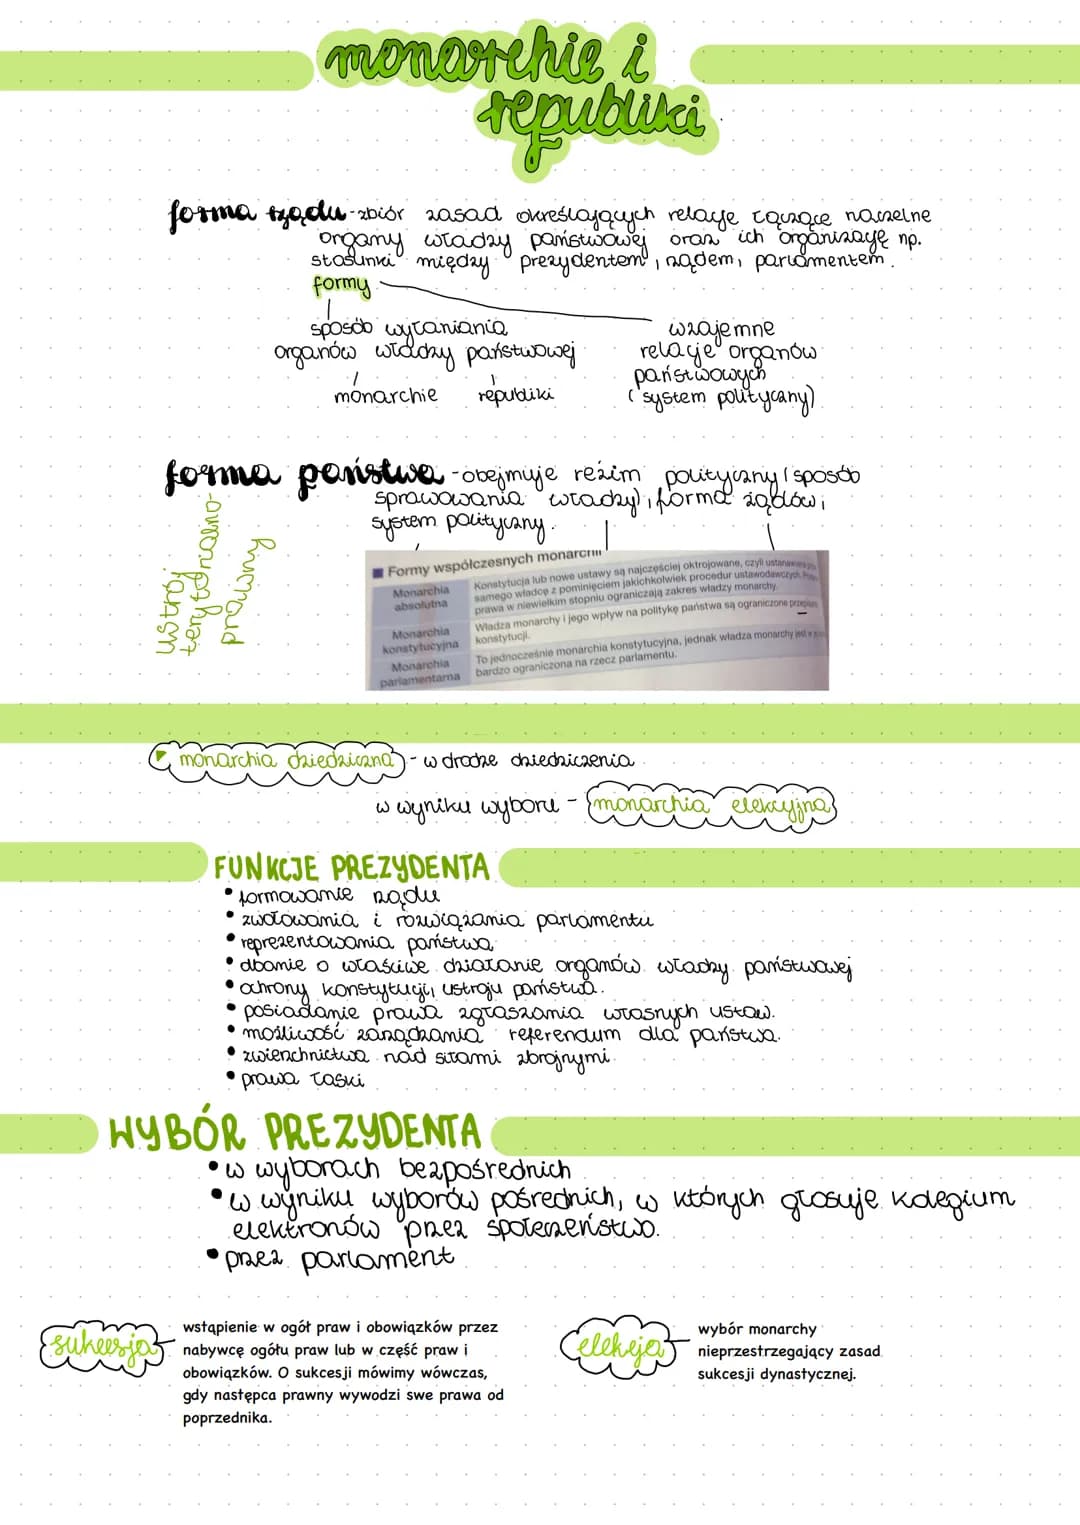 monarchie i
republiki
forma rządu - zbiór zasad określających relacje łączące naczelne
organy władzy państwowej oraz ich organizację np.
stosunki między prezydentem, rządem, parlamentem.
formy
sposób wyłaniania
organów władzy państwowej
monarchie republiki
wzajemne
relacje organów
państwowych
(system polityczny)
forma państwa - obejmuje reżim polityczny (sposób
sprawowania władzy), forma żądów,
system polityczny.
ustrój
terytorialno-
prawny
Formy współczesnych monarchii
Monarchia
absolutna
Konstytucja lub nowe ustawy są najczęściej oktrojowane, czyli ustanawiane
samego władcę z pominięciem jakichkolwiek procedur ustawodawczych.
prawa w niewielkim stopniu ograniczają zakres władzy monarchy.
Monarchia
konstytucyjna
Władza monarchy i jego wpływ na politykę państwa są ograniczone
konstytucji.
Monarchia
parlamentarna
To jednocześnie monarchia konstytucyjna, jednak władza monarchy jest
bardzo ograniczona na rzecz parlamentu.
monarchia dziedziczna - w drodze dziedziczenia
w wyniku wyboru - monarchia elekcyjna
FUNKCJE PREZYDENTA
• formowanie rządu
• zwołowania i rozwiązania parlamentu
• reprezentowania państwa
• dbanie o właściwe działanie organów władzy państwowej
• ochrony konstytucji, ustroju państwa.
• posiadanie prawa zgłaszania własnych ustaw.
• możliwość zarządzania referendum dla państwa.
• zwierzchnictwa nad siłami zbrojnymi
• prawa łaski
WYBÓR PREZYDENTA
• w wyborach bezpośrednich
• w wyniku wyborów pośrednich, w których głosuje kolegium
elektronów przez społeczeństwo.
• przez parlament
sukcesja
wstąpienie w ogół praw i obowiązków przez
nabywcę ogółu praw lub w część praw i
obowiązków. O sukcesji mówimy wówczas,
gdy następca prawny wywodzi swe prawa od
poprzednika.
elekcja
wybór monarchy
nieprzestrzegający zasad
sukcesji dynastycznej.